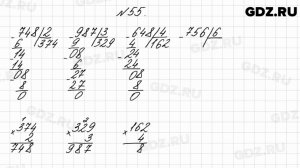 GDZ.RU
№55
-748|2 -987|3 -648|4 -756|6
6 |374 9 |329 4 |162
-14 -08 -24
14 6 24
08 -27 08
8 27 8
0 0 0
1 2
×374 ×329 ×162
2 3 4
748 987 8
GDZ.RU